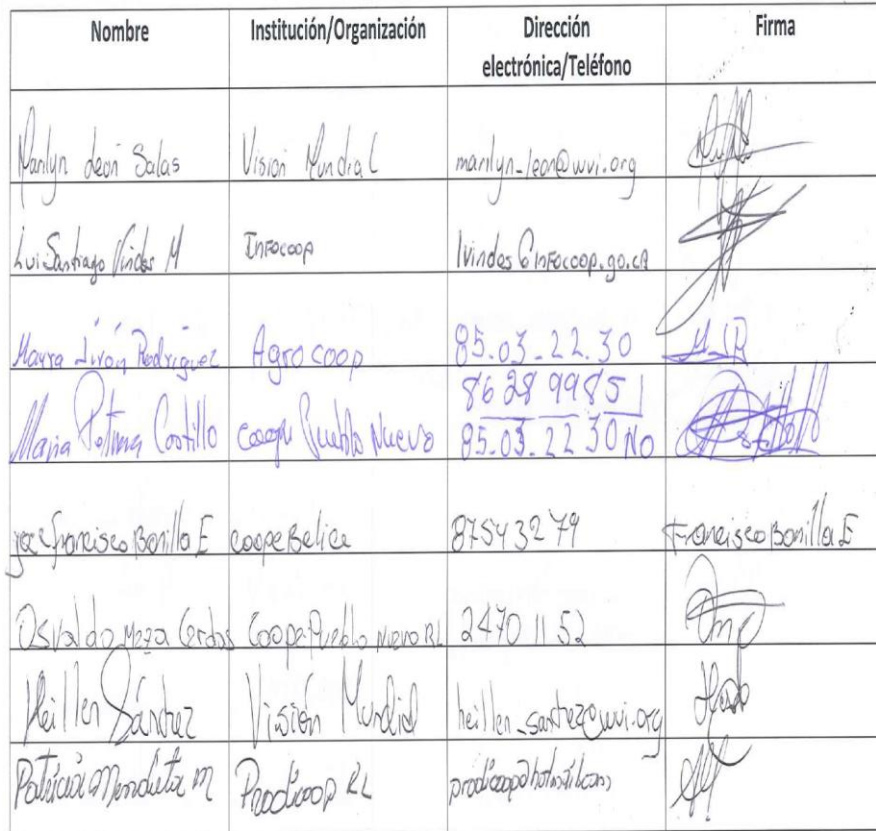 Nombre Institución/Organización Dirección Firma
electrónica/Teléfono
Marilyn León Salas Visión Mundial marilyn_leon@wvi.org
Luis Santiago Vindas M INFOCOOP lvindas@infocoop.go.cr
Mayra Jirón Rodríguez Agrocoop 85.03_22.30 M J R
86 28 99 85
Maria Fatima Castillo Coope Pueblo Nuevo 85.03.22 30 No
jose francisco Bonilla E coopeBelice 87543279 Francisco Bonilla E
Osvaldo Meza Cerdas Coope Pueblo Nuevo RL 2470 11 52
Heillen Sánchez Visión Mundial heillen_sanchez@wvi.org
Patricia Mendieta m Prodicoop RL prodicoop@hotmail.com